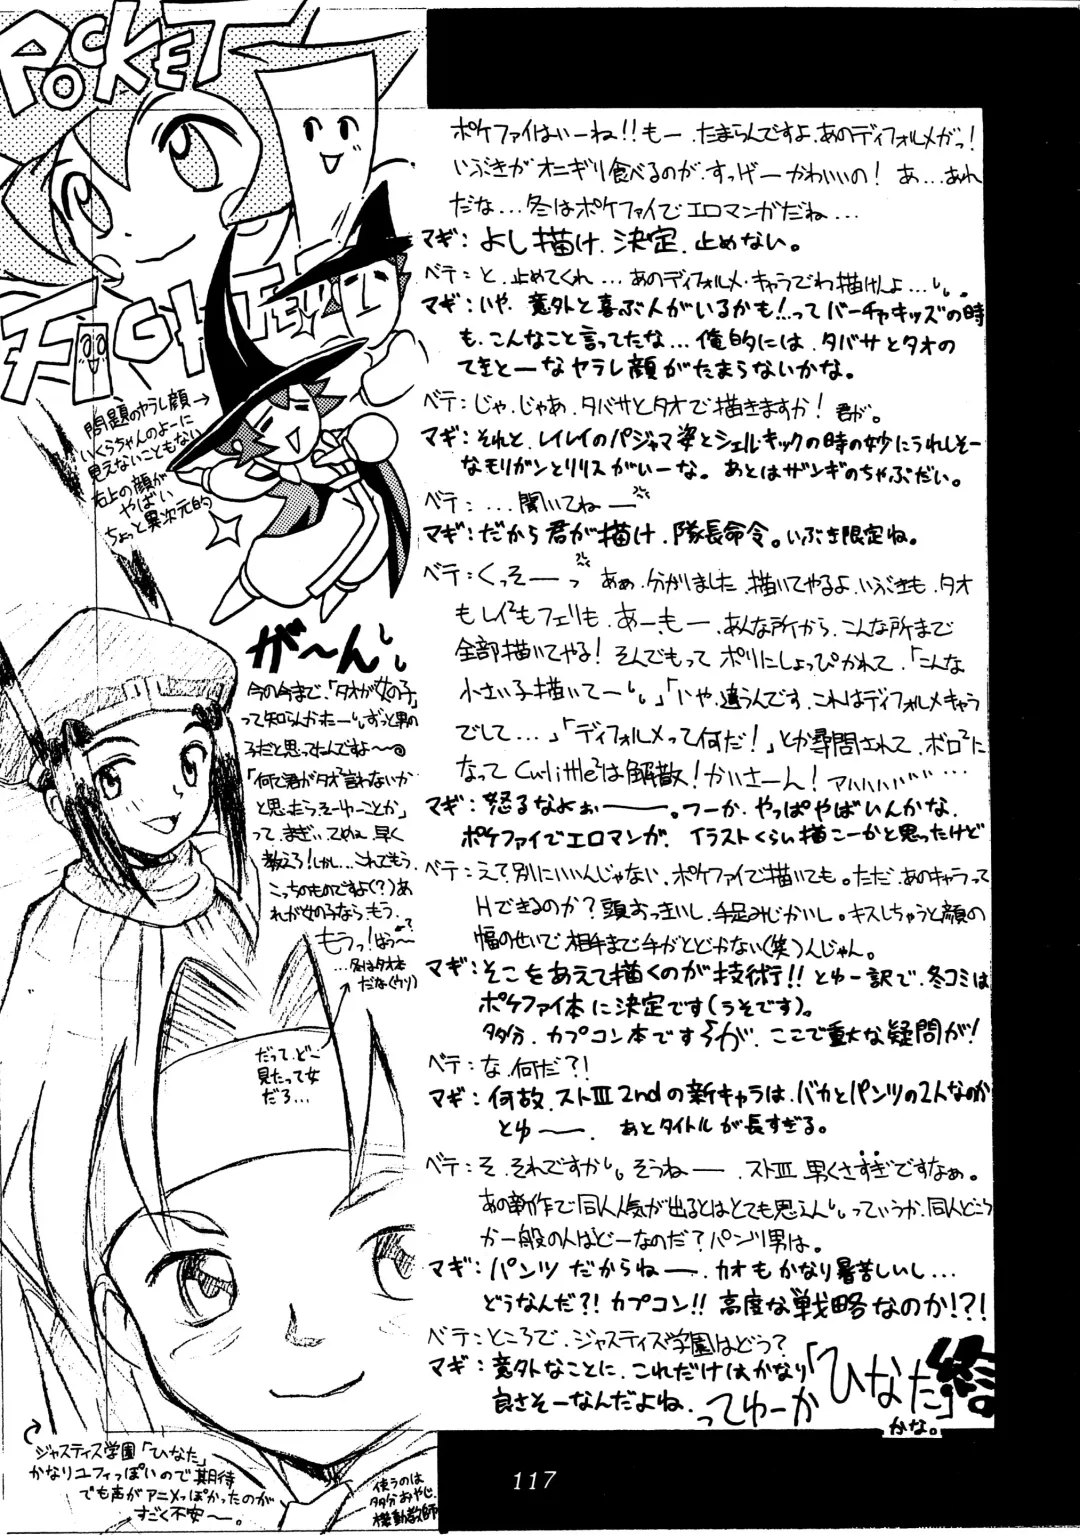 POCKET
FIGHTER
ポケファイはいーね!!もー、たまらんですよ、あのディフォルメがっ!
いぶきがオニギリ食べるのが、すっげーかわいいの! あ…あれ
だな…冬はポケファイでエロマンガだね…
マギ:よし描け、決定、止めない。
ベテ:と、止めてくれ…あのディフォルメ・キャラでわ描けんよ…
マギ:いや、意外と喜ぶ人がいるかも!…ってバーチャキッズの時
も、こんなこと言ってたな… 俺的には、タバサとタオの
てきとーなヤラレ顔がたまらないかな。
ベテ:じゃ、じゃあ、タバサとタオで描きますか! 君が。
マギ:それと、レイレイのパジャマ姿とシェルキックの時の妙にうれしそー
なモリガンとリリスがいーな。あとはザンギのちゃぶだい。
ベテ:…聞いてねー
マギ:だから君が描け、隊長命令。いぶき限定ね。
ベテ:くっそーっ あぁ、分かりました、描いてやるよ、いぶきも、タオ
もレイ²もフェリも、あー、もー、あんな所から、こんな所まで
全部描いてやる!そんでもって ポリにしょっぴかれて、「こんな
小さい子描いてー」「いや、違うんです、これはディフォルメキャラ
でして…」「ディフォルメって何だ!」とか尋問されて、ボロ²に
なって Cu-little²は解散!かいさーん!
マギ:怒るなよぉー。つーか、やっぱやばいんかな、
ポケファイでエロマンガ、イラストくらい描こーかと思ったけど
ベテ:えて別にいいんじゃない、ポケファイで描いても。ただ、あのキャラって
Hできるのか?頭おっきいし、手足みじかいし。キスしちゃうと顔の
幅のせいで、相手まで手がとどかない(笑)んじゃん。
マギ:そこをあえて描くのが技術!! とゆー訳で、冬コミは
ポケファイ本に決定です(うそです)。
多分、カプコン本ですが、ここで重大な疑問が!
ベテ:な、何だ?!
マギ:何故、ストⅢ2ndの新キャラは、バカとパンツの2人なのか
とゆー。 あとタイトルが長すぎる。
ベテ:そ、それですか。そうねー、ストⅢ、男くさすぎですなぁ。
あの新作で同人人気が出るとはとても思えん、っていうか、同人どころ
か一般の人はどーなのだ?パンツ男は。
マギ:パンツだからねー、カオもかなり暑苦しいし…
どうなんだ?! カプコン!! 高度な戦略なのか!?!
ベテ:ところで、ジャスティス学園はどう?
マギ:意外なことに、これだけはかなり
良さそーなんだよね、ってゆーか
「ひなた」
かな。
終
問題のヤラレ顔→
いくらちゃんのよーに
見えないこともない
右上の顔が
やばい
ちょっと異次元的
が〜ん
今の今まで、「タオが女の子」
って知らんかったー、ずっと男の
子だと思ってたんですよ〜。
「何で君がタオ²言わないか
と思ったら、そーゆーことか」
って、まぎぃ、てめぇ早く
教えろ!しかし…これでもう、
こっちのものですよ(?)あ
れが女の子なら、もう、
もうっ!はぅ〜
…冬はタオ本
だな(ウソ)
だって、ど〜
見たって女
だろ…
ジャスティス学園「ひなた」
かなりユフィっぽいので期待
でも声がアニメっぽかったのが
すごく不安〜。
使うのは
多分おやじ、
機動教師
117